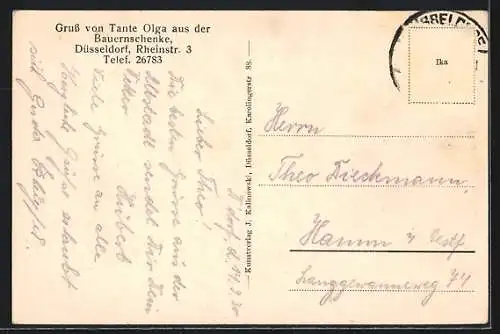 Gruß von Tante Olga aus der
Bauernschenke,
Düsseldorf, Rheinstr. 3
Telef. 26783
D'dorf, d.
Lieber Theo!
Die besten Grüsse aus der
Altstadt sendet Dir Dein
Vetter Hubert
Viele Grüsse an alle
Herzliche Grüße
Kunstverlag J. Kallnowski, Düsseldorf, Karolingerstr. 88.
Ika
Herrn
Theo Dieckmann,
Hamm i/ Westf.
Langgewanneweg 74